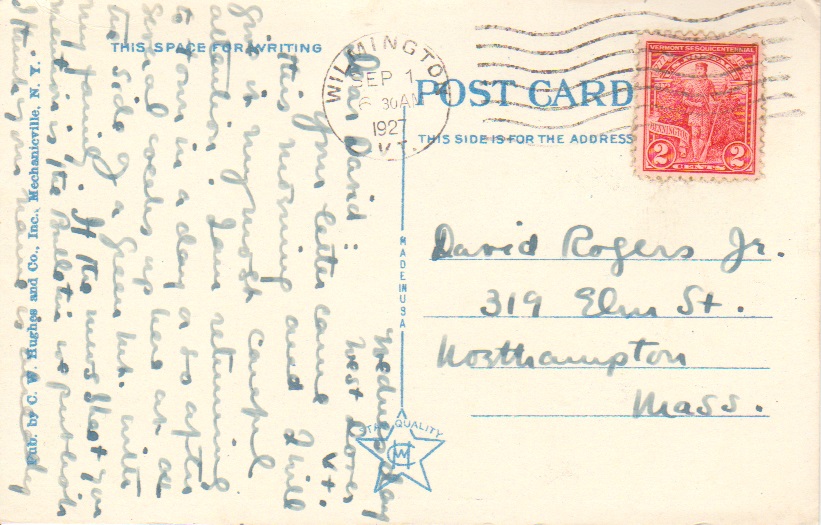 THIS SPACE FOR WRITING
Wednesday
West Dover
Vt.
Dear David:
Your letter came
this morning and I will
give it my most careful
attention. I am returning
to town in a day or so after
several weeks up here
side of a Green Mt. with
my family. If the news sheet you
mention is the Bulletin we publish
I think your name is already
Pub. by C. W. Hughes and Co., Inc., Mechanicville, N. Y.
MADE IN USA
STAR QUALITY
CWH
WILMINGTON
SEP 1
6 30 AM
1927
VT.
POST CARD
THIS SIDE IS FOR THE ADDRESS
VERMONT SESQUICENTENNIAL
BENNINGTON
2 CENTS 2
David Rogers Jr.
319 Elm St.
Northampton
Mass.